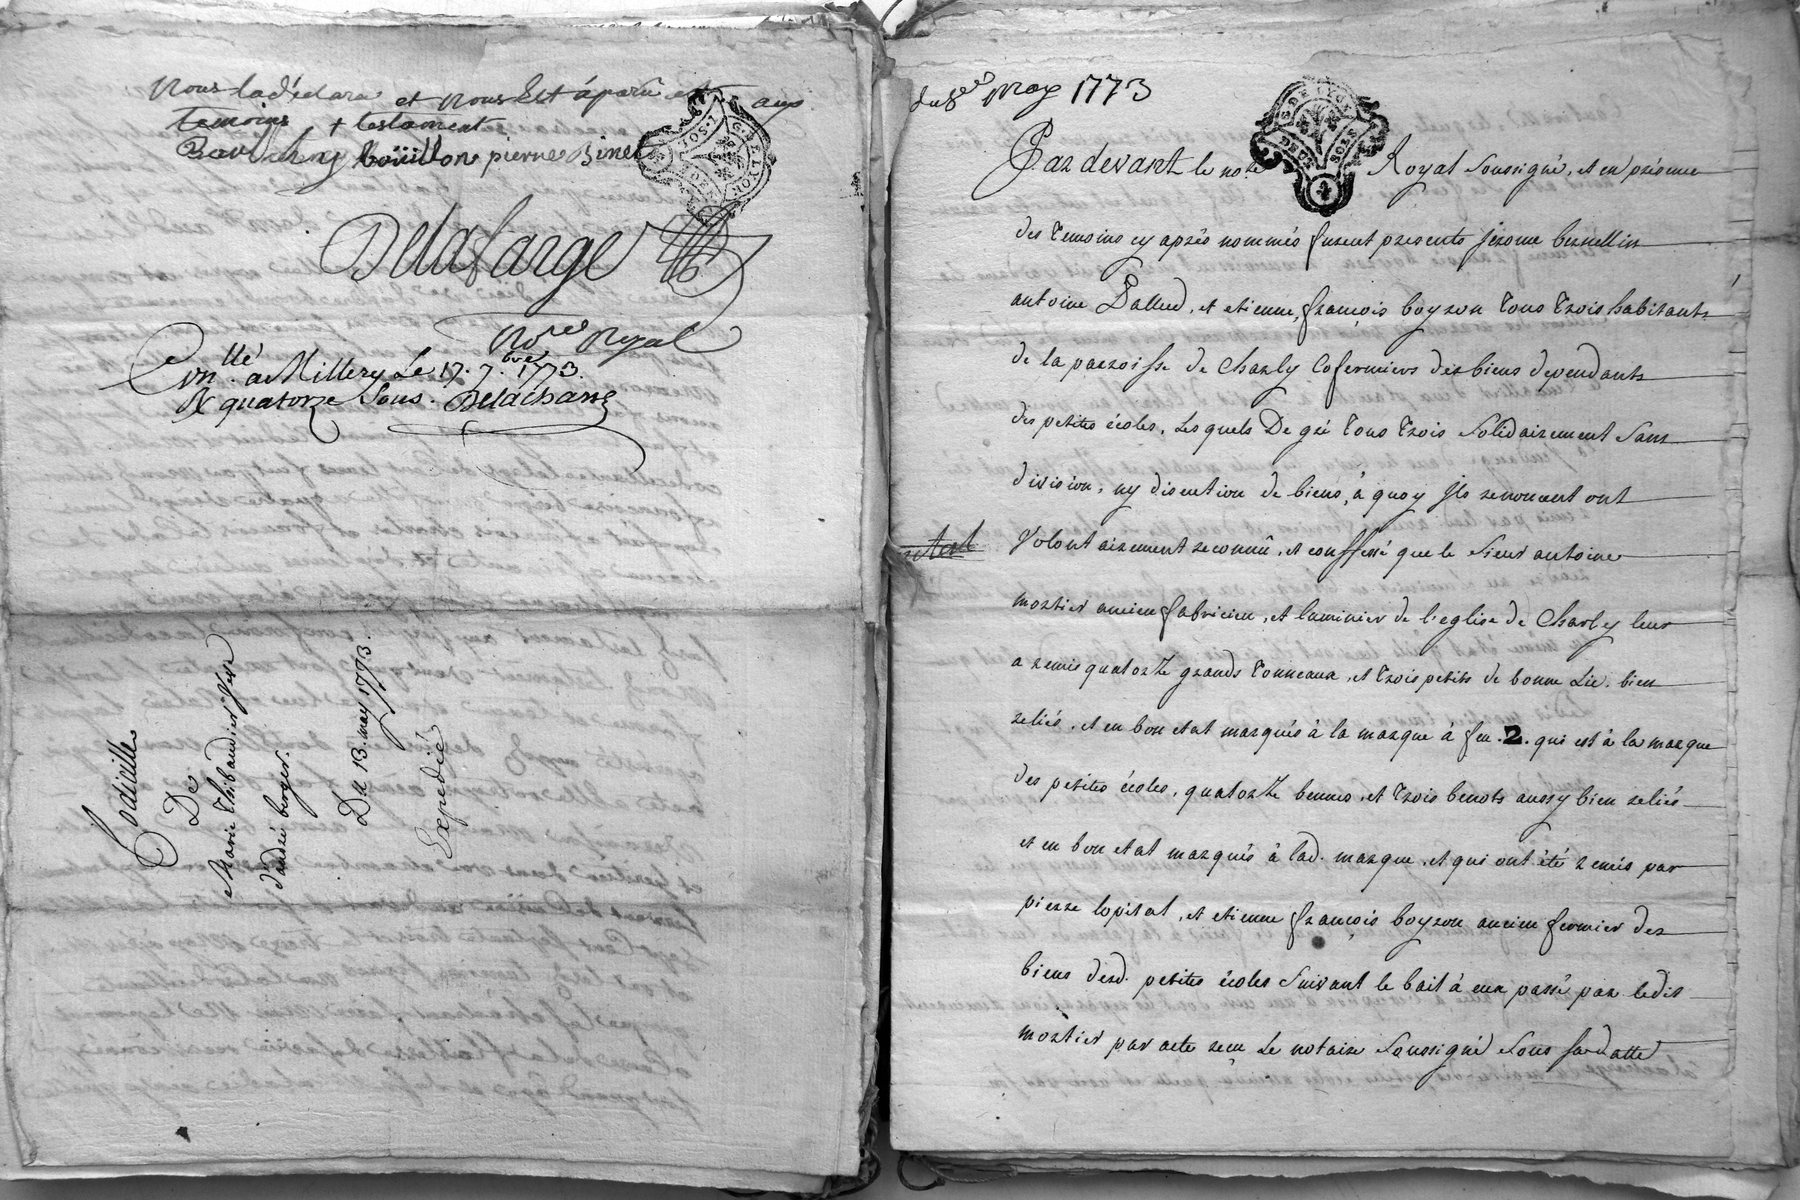 Nous la déclaré et nous Est áparû et aux
temoins + testament
bouillon pierre Binet
Delafarge
No.re Royal
Con.llé a Millery Le 17. 7.bre 1773.
R quatorze Sous. Delacharse
Codicille
De
Marie Thibaudier Veve
d'andré berger.
Du 13. may 1773.
Expedié
G. DE LYON
SOLS
du 8.e May 1773
Par devant le no.re Royal Soussigné, et en présence
des temoins cy aprés nommés furent presents jérome
antoine Dallud, et etienne, françois boyron tous trois habitants
de la parroisse de Charly Cofermiers des biens dependants
des petites écoles, Lesquels De gré tous trois Solidairement Sans
division, ny discution de biens, á quoy Ils renoncent ont
Volontairement reconnû, et confessé que le Sieur antoine
mortier ancien fabricien, et luminier de l'eglise de Charly leur
a remis quatorze grands tonneaux, et trois petits de bonne Lie, bien
reliés, et en bon etat marqués à la marque à feu .2. qui est à la marque
des petites écoles, quatorze bennes, et trois benots aussy bien reliés
et en bon etat marqués à lad. marque, et qui ont été remis par
pierre lopital, et etienne françois boyron ancien fermier des
biens desd. petites écoles Suivant le bail à eux passé par ledit
mortier par acte reçu Le notaire Soussigné Sous sa datte